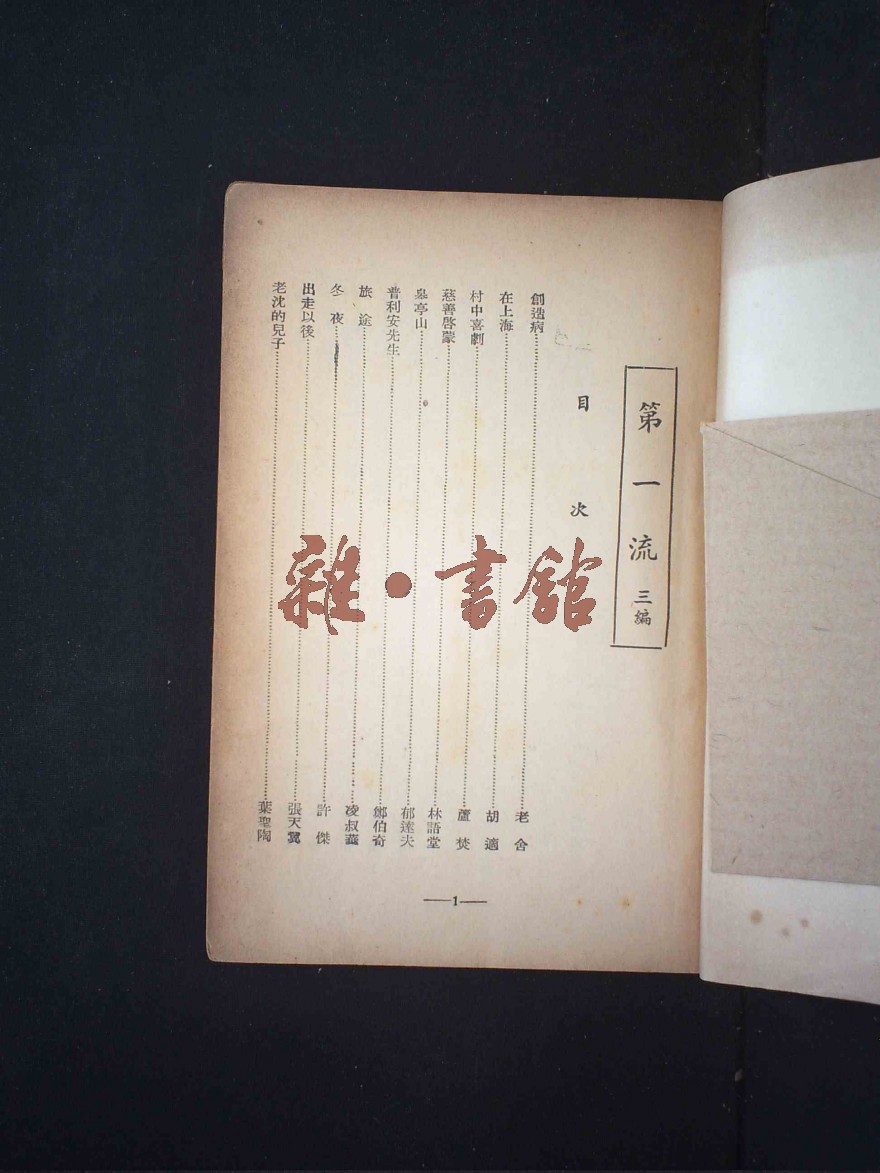 第一流 三編
目次
創造病……老舍
在上海……胡適
村中喜劇……蘆焚
慈善啓蒙……林語堂
皋亭山……郁達夫
普利安先生……鄭伯奇
旅途……凌叔華
冬夜……許傑
出走以後……張天翼
老沈的兒子……葉聖陶
—1—
雜·書館